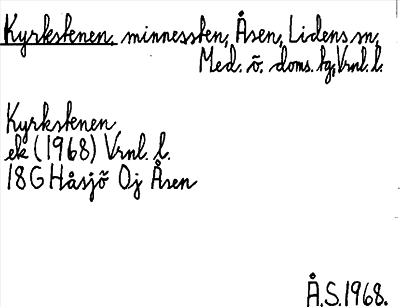 Kyrkstenen, minnessten, Åsen, Lidens sn,
Med. ö. doms. tg, Vrnl. l.
Kyrkstenen
ek (1968) Vrnl. l.
18G Håsjö Oj Åsen
Å.S. 1968.